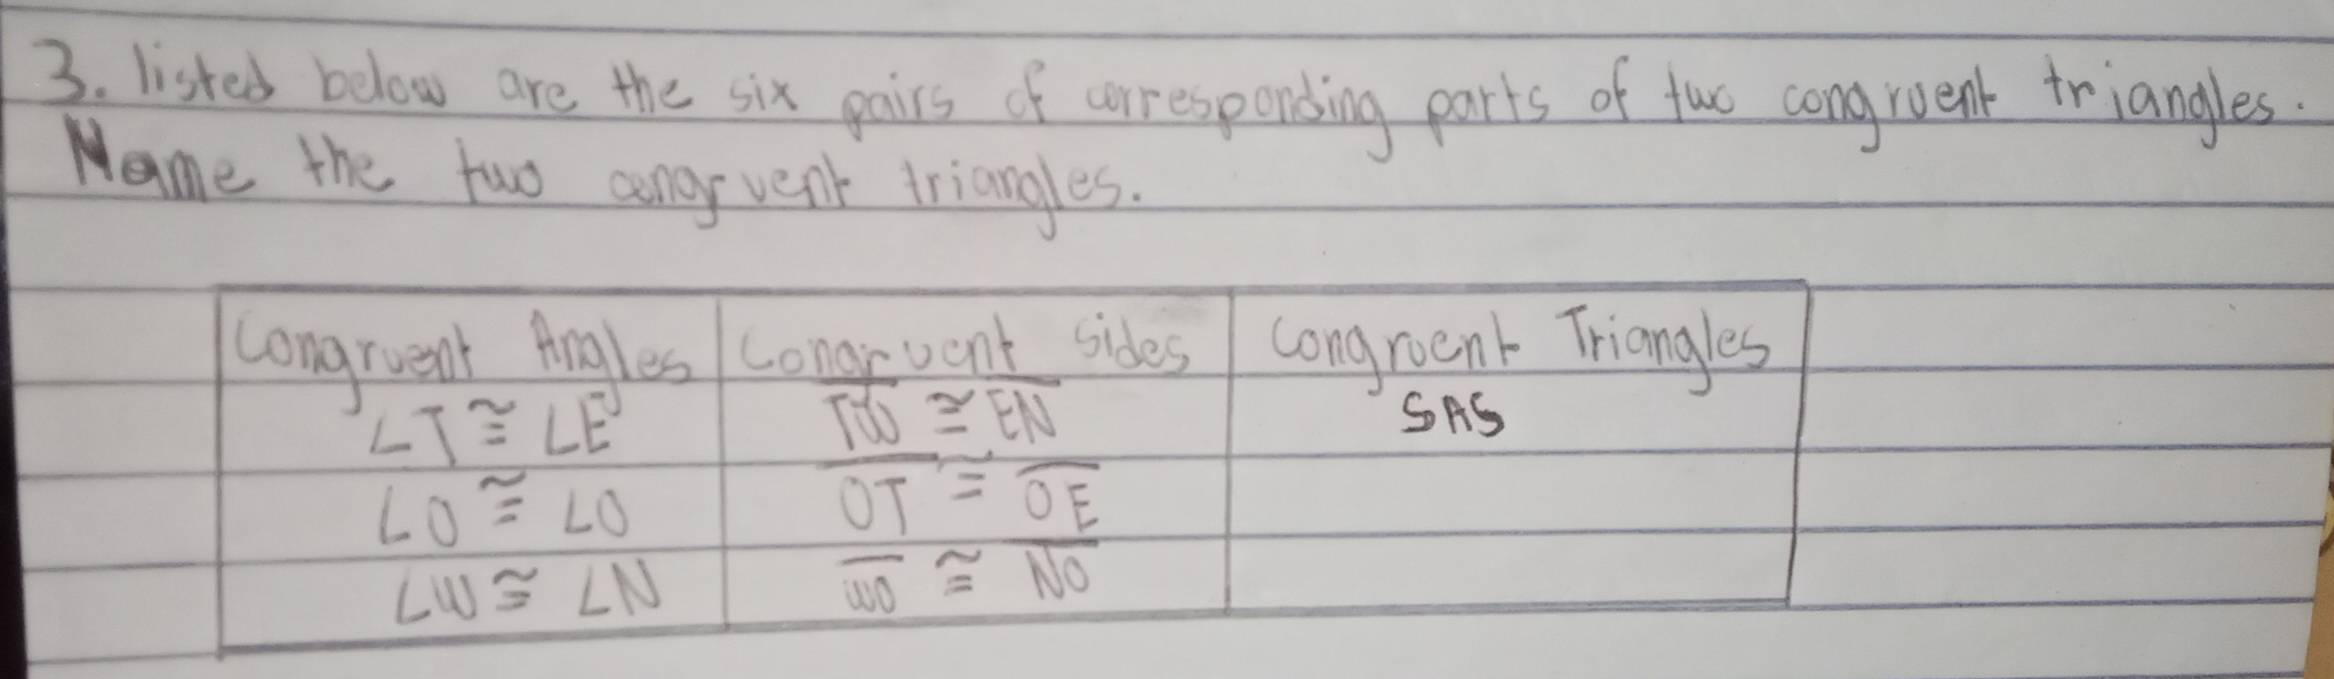 3. listed below are the six pairs of corresponding parts of two congruent triangles.
Name the two congruent triangles.
Congruent Angles Congruent sides Congruent Triangles
∠T ≅ ∠E T̅W̅ ≅ E̅N̅ SAS
∠O ≅ ∠O O̅T̅ ≅ O̅E̅
∠W ≅ ∠N W̅O̅ ≅ N̅O̅